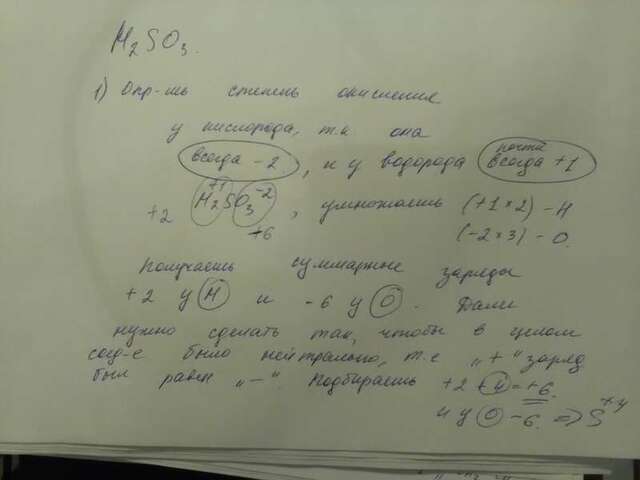 H2SO3.
1) Опр-шь степень окисления
у кислорода, т.к она
почти
всегда -2, и у водорода всегда +1
+1 -2
+2 H2SO3, умножаешь (+1×2) - H
+6 (-2×3) - O.
Получаешь суммарные заряды
+2 у H и -6 у O. Далее
нужно сделать так, чтобы в целом
соед-е было нейтрально, т.е „+“ заряд
был равен „-“. Подбираешь +2+4=+6
и у O -6. => S+4